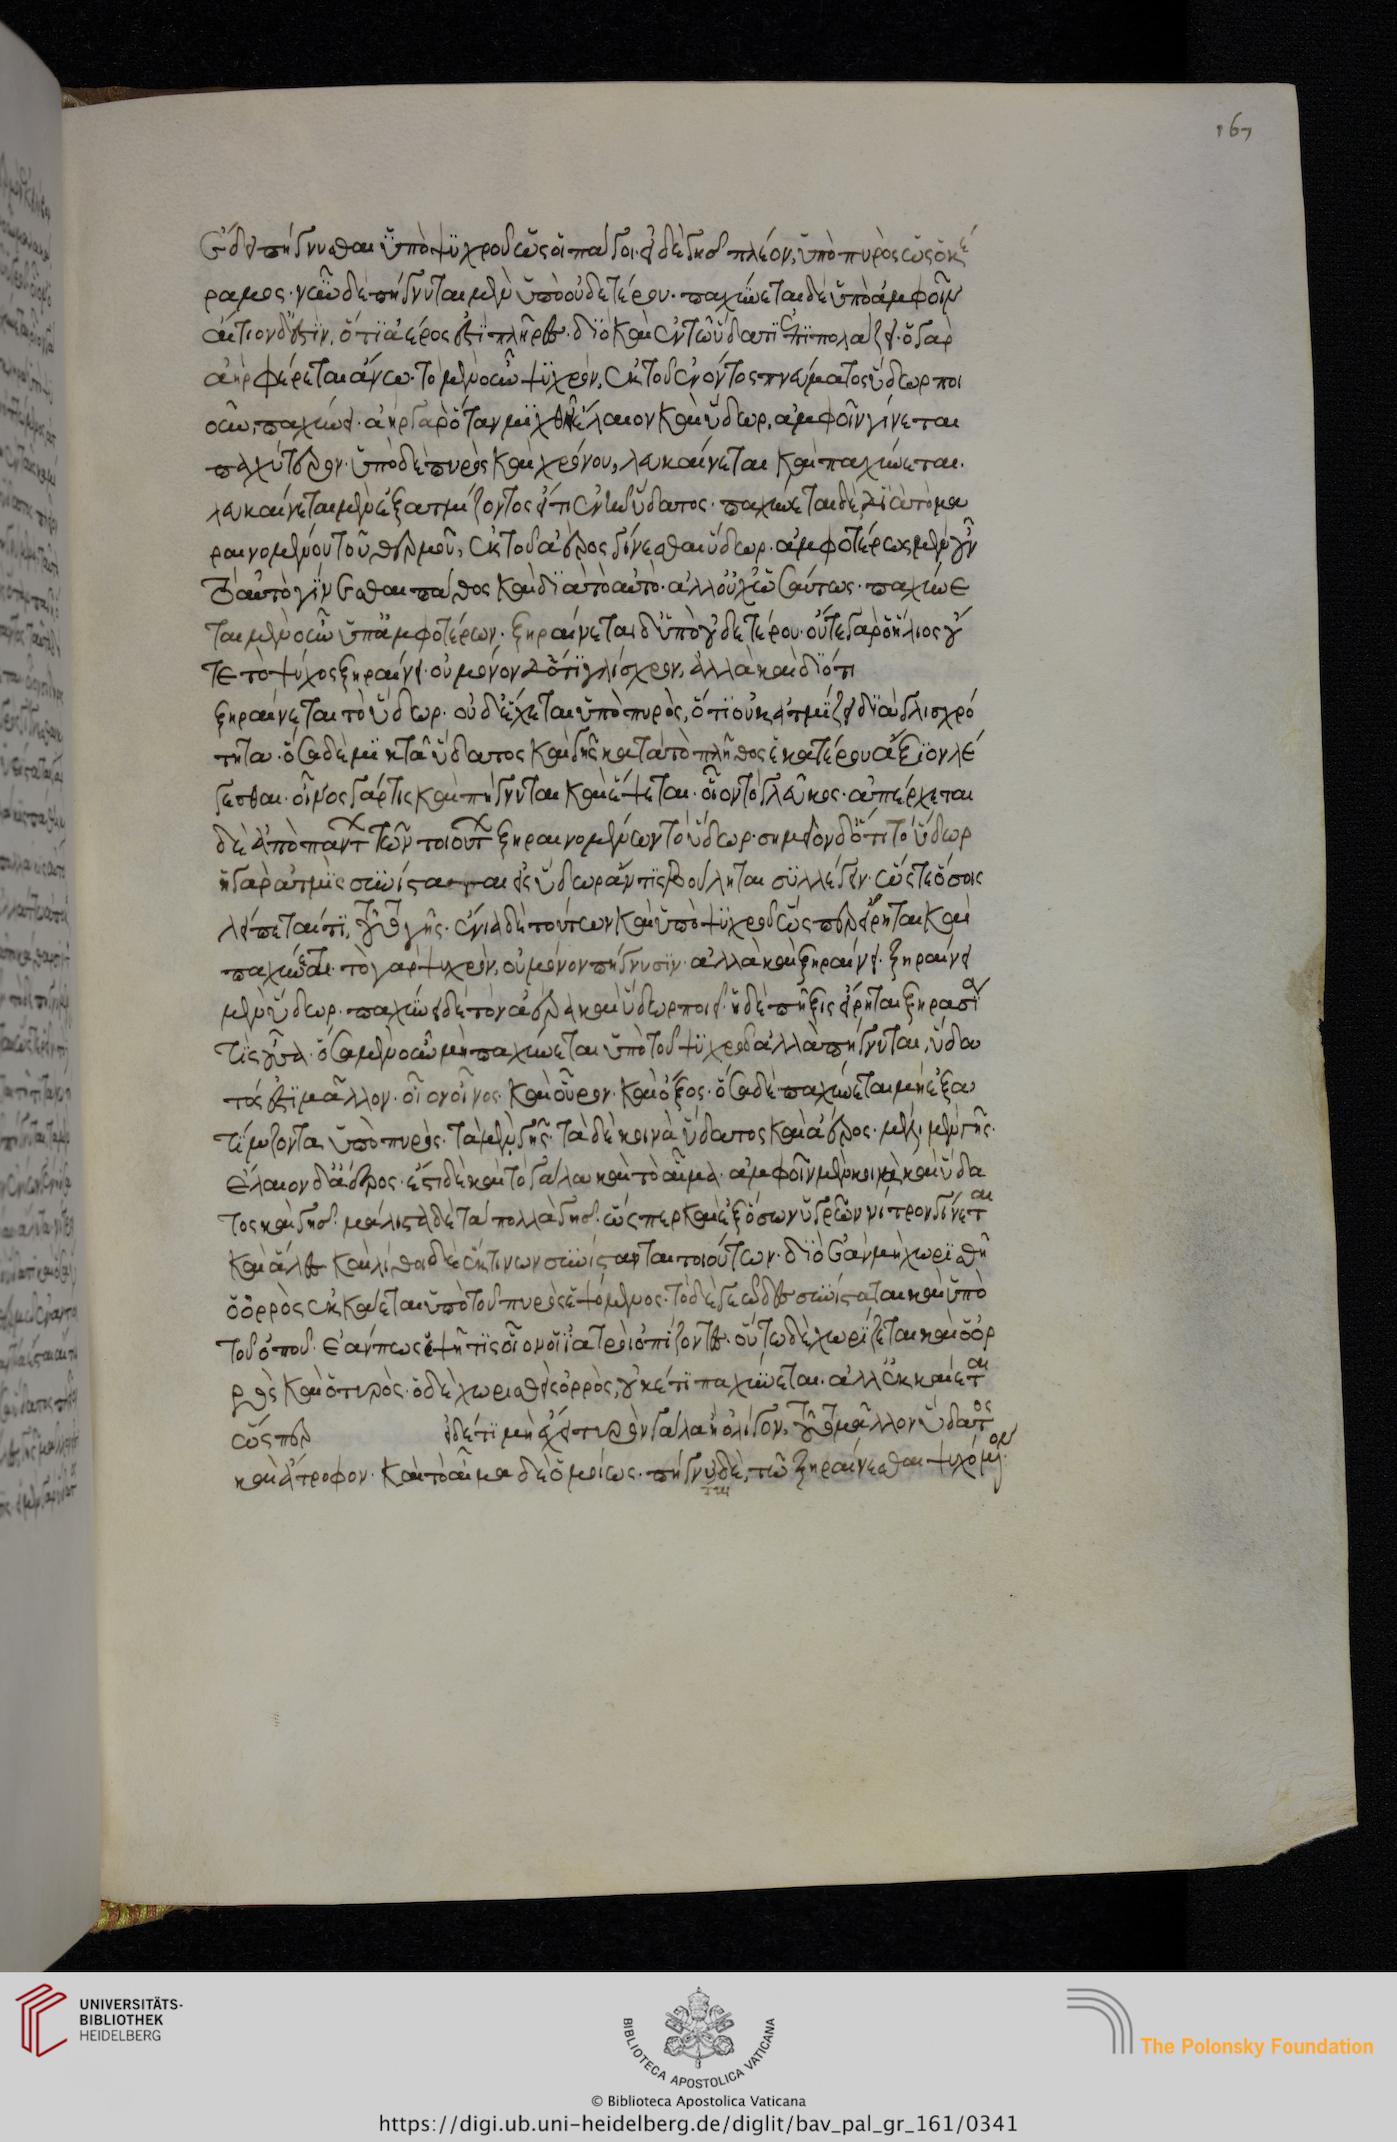 167
ἔδει πήγνυσθαι ὑπὸ ψυχροῦ ὡς οἱ πάγοι· εἰ δὲ γῆς πλέον, ὑπὸ πυρὸς ὡς ὁ κέ
ραμος· νῦν δὲ πήγνυται μὲν ὑπὸ οὐδετέρου· παχύνεται δὲ ὑπὸ ἀμφοῖν
αἴτιον δ' ἐστὶν, ὅτι ἀέρος ἐστὶ πλῆρες· διὸ καὶ ἐν τῷ ὕδατι ἐπιπολάζει· ὁ γὰρ
ἀὴρ φέρεται ἄνω· τὸ μὲν οὖν ψυχρὸν, ἐκ τοῦ ἐνόντος πνεύματος ὕδωρ ποι
οῦν, παχύνει· ἀεὶ γὰρ ὅταν μιχθῇ ἔλαιον καὶ ὕδωρ, ἀμφοῖν γίνεται
παχύτερον· ὑπὸ δὲ πυρὸς καὶ χρόνου, λευκαίνεται καὶ παχύνεται·
λευκαίνεται μὲν ἐξατμίζοντος εἴ τι ἐνῆν ὕδατος· παχύνεται δὲ, διὰ τὸ μα
ραινομένου τοῦ θερμοῦ, ἐκ τοῦ ἀέρος γίνεσθαι ὕδωρ· ἀμφοτέρως μὲν οὖν
τὸ αὐτὸ γίνεσθαι πάθος καὶ διὰ τὸ αὐτὸ· ἀλλ' οὐχ ὡσαύτως· παχύνε
ται μὲν οὖν ὑπ' ἀμφοτέρων· ξηραίνεται δ' ὑπ' οὐδετέρου· οὔτε γὰρ ὁ ἥλιος οὔ
τε τὸ ψύχος ξηραίνει· οὐ μόνον διότι γλίσχρον, ἀλλὰ καὶ διότι
ξηραίνεται τὸ ὕδωρ· οὐδ' ἕψεται ὑπὸ πυρὸς, ὅτι οὐκ ἀτμίζει διὰ γλισχρό
τητα· ὅσα δὲ μικτὰ ὕδατος καὶ γῆς κατὰ τὸ πλῆθος ἑκατέρου ἄξιον λέ
γεσθαι· οἶνος γάρ τις καὶ πήγνυται καὶ ἕψεται· οἷον τὸ γλεῦκος· ἀπέρχεται
δὲ ἀπὸ πάντων τῶν τοιούτων ξηραινομένων τὸ ὕδωρ· σημεῖον δ' ὅτι τὸ ὕδωρ
ἡ γὰρ ἀτμὶς συνίσταται εἰς ὕδωρ ἄν τις βούληται συλλέγειν· ὥστε ὅσοις
λείπεταί τι, τοῦτο γῆς· ἔνια δὲ τούτων καὶ ὑπὸ ψυχροῦ ὥσπερ εἴρηται καὶ
παχύνεται· τὸ γὰρ ψυχρὸν, οὐ μόνον πήγνυσιν· ἀλλὰ καὶ ξηραίνει· ξηραίνει
μὲν ὕδωρ· παχύνει δὲ τὸν ἀέρα καὶ ὕδωρ ποιεῖ· ἡ δὲ πῆξις εἴρηται ξηρασί
τις οὖσα· ὅσα μὲν οὖν μὴ παχύνεται ὑπὸ τοῦ ψυχροῦ ἀλλὰ πήγνυται, ὕδα
τός ἐστι μᾶλλον· οἷον οἶνος· καὶ οὖρον· καὶ ὄξος· ὅσα δὲ παχύνεται μὴ ἐξα
τμίζοντα ὑπὸ πυρὸς· τὰ μὲν γῆς· τὰ δὲ κοινὰ ὕδατος καὶ ἀέρος· μέλι μὲν γῆς·
ἔλαιον δ' ἀέρος· ἔστι δὲ καὶ τὸ γάλα καὶ τὸ αἷμα· ἀμφοῖν μὲν κοινὰ καὶ ὕδα
τος καὶ γῆς· μάλιστα δὲ τὰ πολλὰ γῆς· ὥσπερ καὶ ἐξ ὅσων ὑγρῶν νίτρον γίνεται
καὶ ἅλες καὶ λίθοι δὲ ἔκ τινων συνίστανται τοιούτων· διὸ ἐὰν μὴ χωρισθῇ
ὁ ὀρρὸς ἐκκάεται ὑπὸ τοῦ πυρὸς ἑψόμενος· τὸ δὲ γεῶδες συνίσταται καὶ ὑπὸ
τοῦ ὀποῦ· ἐάν πως ἕψῃ τις οἷον οἱ ἰατροὶ ὀπίζοντες· οὕτω δὲ χωρίζεται καὶ ὁ ὀρ
ρὸς καὶ ὁ τυρός· ὁ δὲ χωρισθεὶς ὀρρὸς, οὐκέτι παχύνεται· ἀλλ' ἐκκάεται
ὥσπερ εἰ δέ τι μὴ ἔχει τυρὸν γάλα ἢ ὀλίγον, τοῦτο μᾶλλον ὕδατος
καὶ ἄτροφον· καὶ τὸ αἷμα δὲ ὁμοίως· πήγνυται δὲ, τῷ ξηραίνεσθαι ψυχόμενον·
UNIVERSITÄTS-
BIBLIOTHEK
HEIDELBERG
BIBLIOTECA APOSTOLICA VATICANA
The Polonsky Foundation
© Biblioteca Apostolica Vaticana
https://digi.ub.uni-heidelberg.de/diglit/bav_pal_gr_161/0341